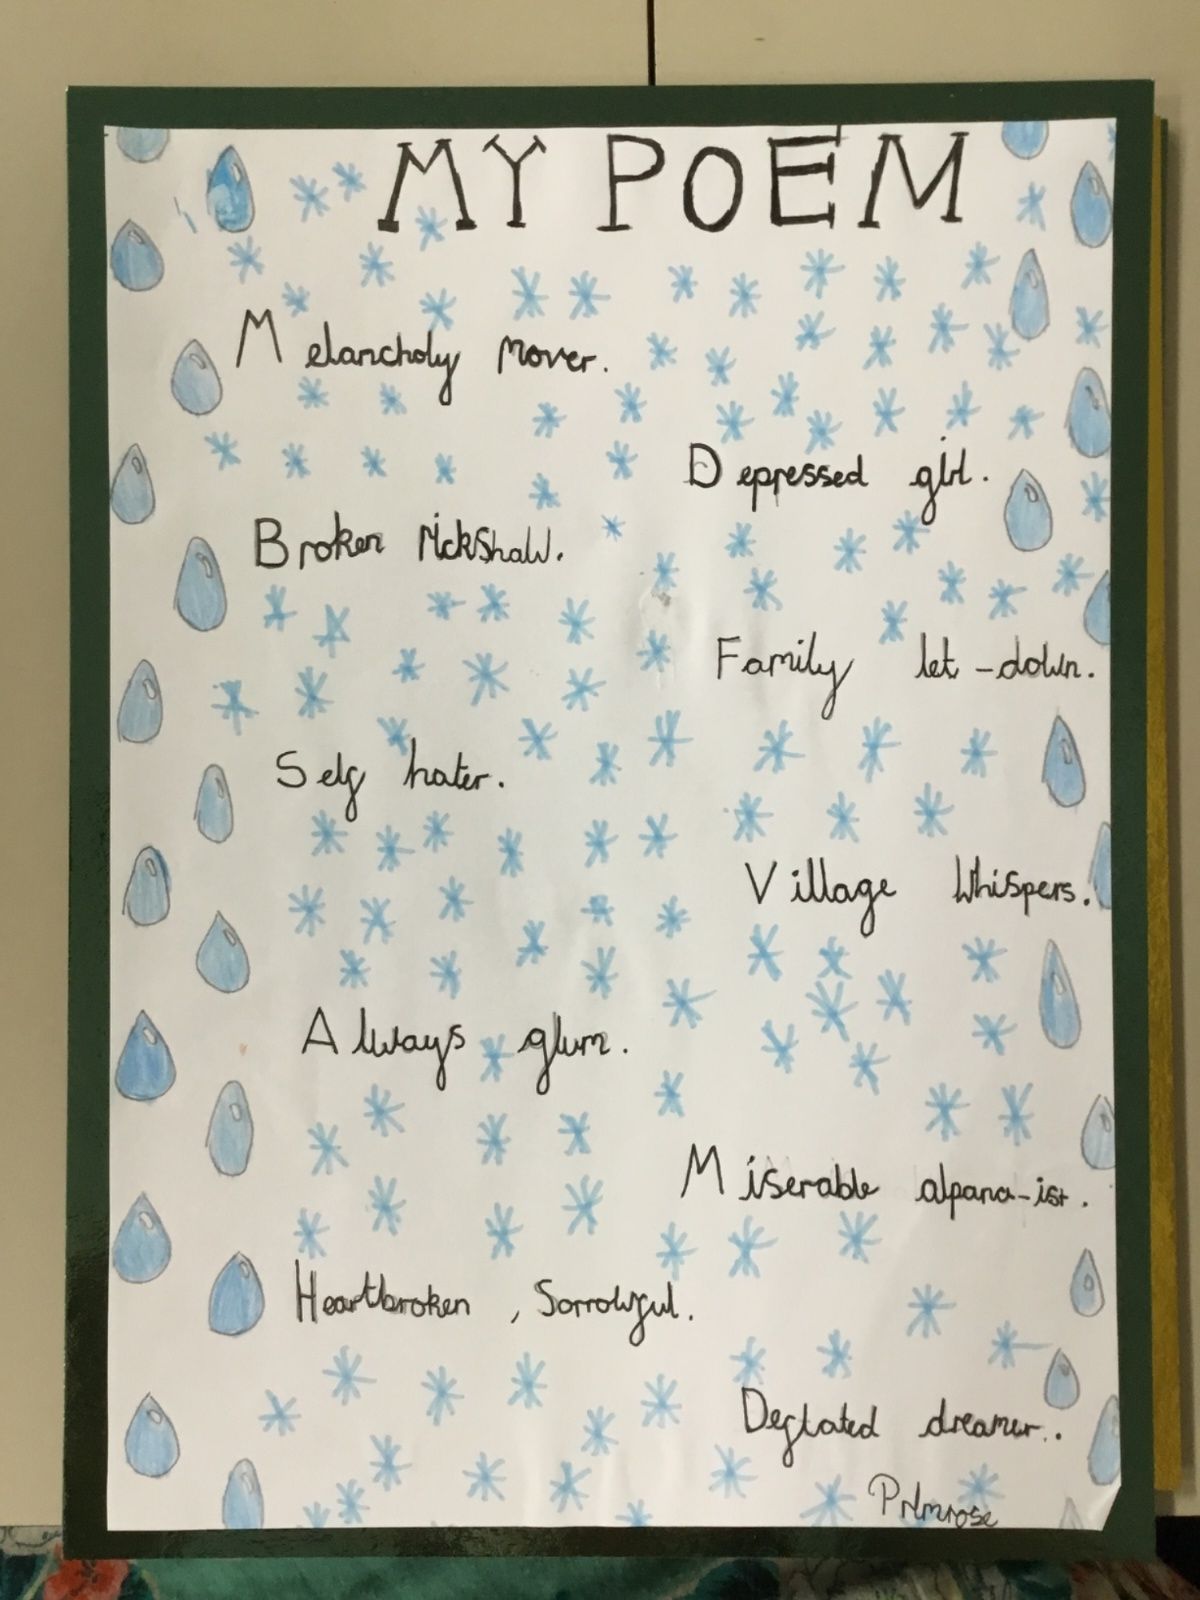 MY POEM
Melancholy mover.
Depressed girl.
Broken rickshaw.
Family let-down.
Self hater.
Village whispers.
Always glum.
Miserable alpana-ist.
Heartbroken, Sorrowful.
Deflated dreamer..
Primrose